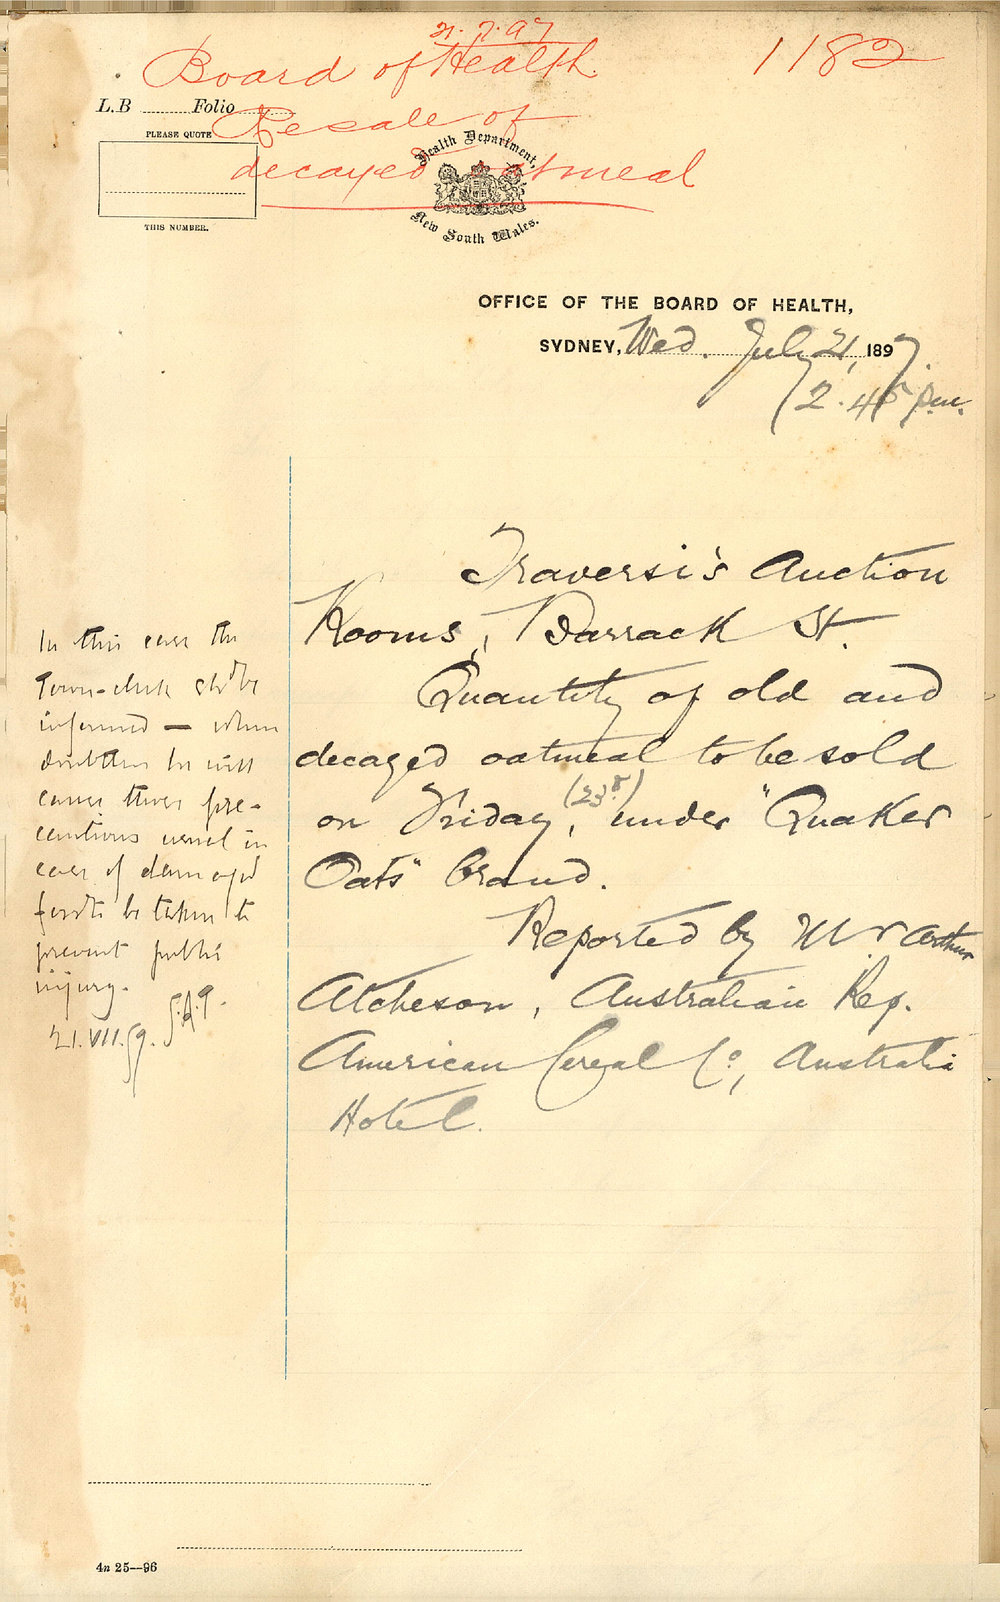 21.7.97
Board of Health
1182
L.B ........ Folio ........
Re sale of
PLEASE QUOTE
decayed oatmeal
THIS NUMBER.
Health Department,
New South Wales.
OFFICE OF THE BOARD OF HEALTH,
SYDNEY, Wed. July 21, 1897.
(2.45 p.m.
Traversi's Auction
Rooms, Barrack St.
Quantity of old and
decayed oatmeal to be sold
on Friday, (23rd) under "Quaker
Oats" brand.
Reported by Mr Arthur
Atcheson, Australian Rep.
American Cereal Co, Australia
Hotel.
In this case the
Town-clerk shd be
informed — when
doubtless he will
cause those pre-
cautions usual in
cases of damaged
foods to be taken to
prevent public
injury.
21.VII.
4n 25—96